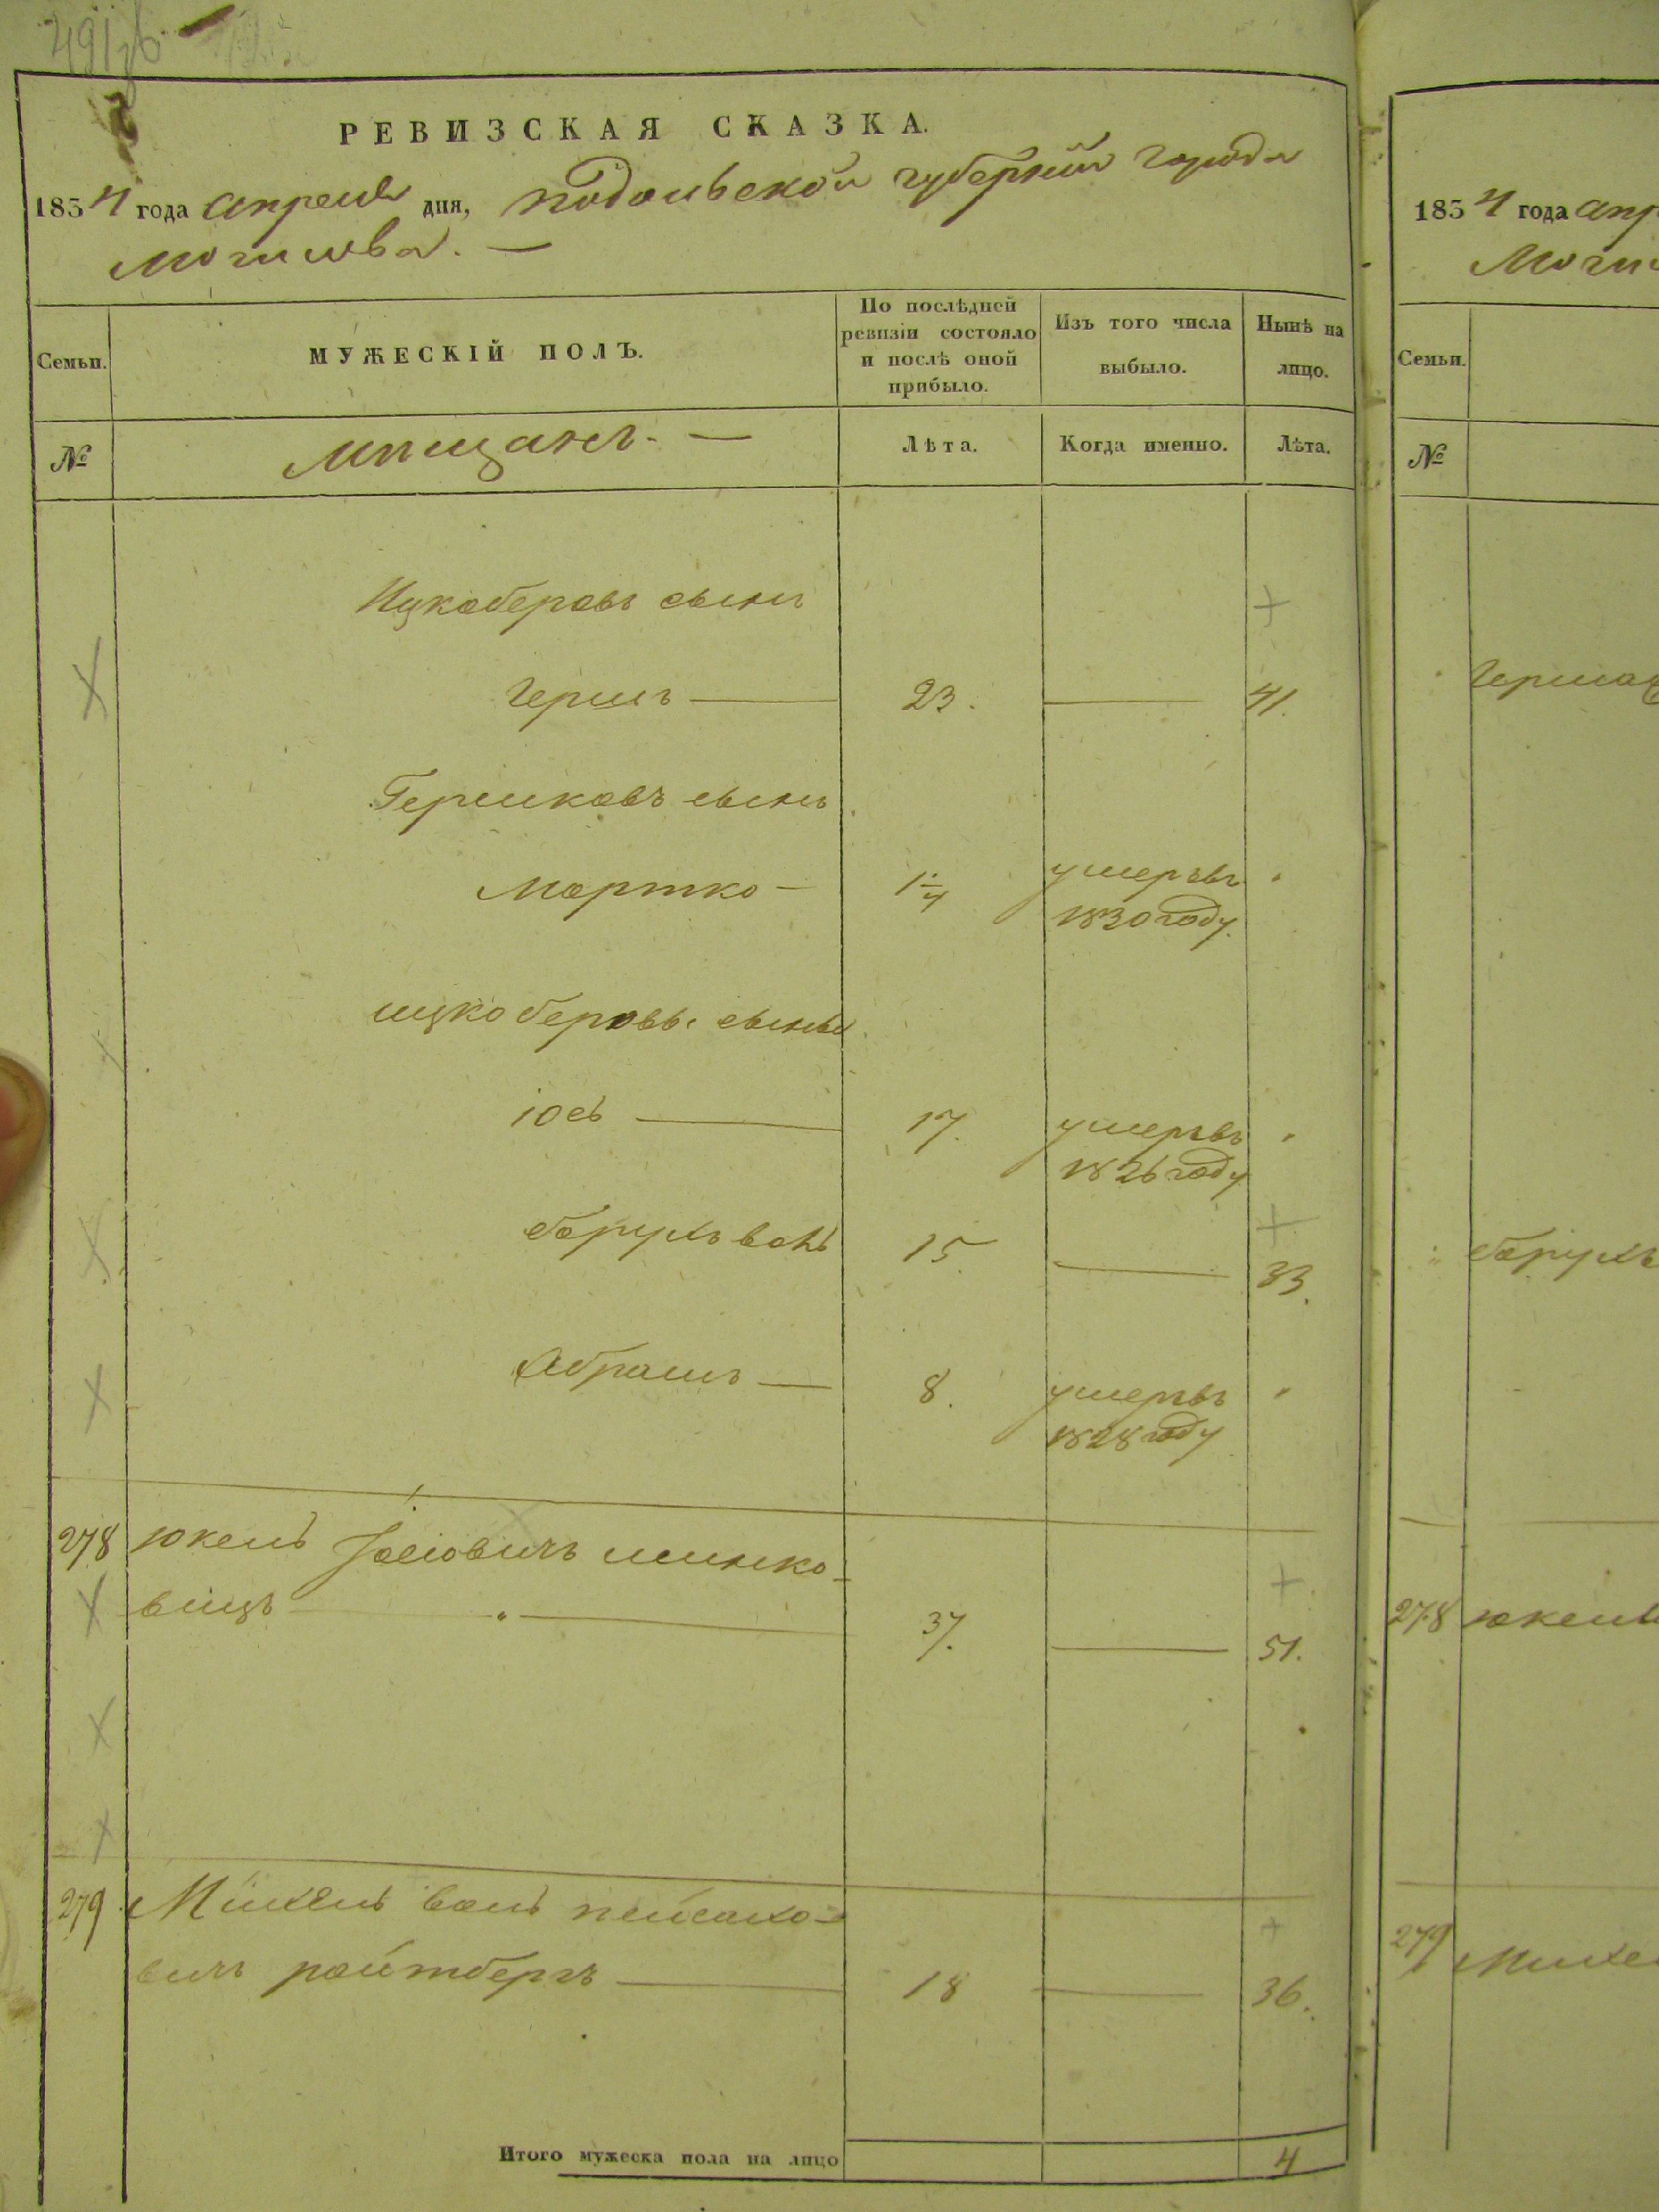 РЕВИЗСКАЯ СКАЗКА.
1834 года апреля дня, подольской губернии города
могилева. —
Семьи.
МУЖЕСКІЙ ПОЛЪ.
По послѣдней ревизіи состояло и послѣ оной прибыло.
Изъ того числа выбыло.
Нынѣ на лицо.
№
мещанъ. —
Лѣта.
Когда именно.
Лѣта.
Ицкоберовъ сынъ
Гершъ — 23. — 41.
Гершковъ сынъ
Мортко — 1 1/4 умеръ въ
1830 году.
ицкоберовы сыны
іось — 17. умеръ въ
1826 году
борухъ волъ 15. — 33.
Абрамъ — 8. умеръ въ
1828 году
278 юкель Іосіовичъ минко-
вицъ — 37. — 51.
279 Михель волъ пейсахо-
вичъ ройтбергъ — 18 — 36.
Итого мужеска пола на лицо 4
1834 года апр
Моги
Семьи.
№
Гершка
борухъ
278 юкель
279 Михе